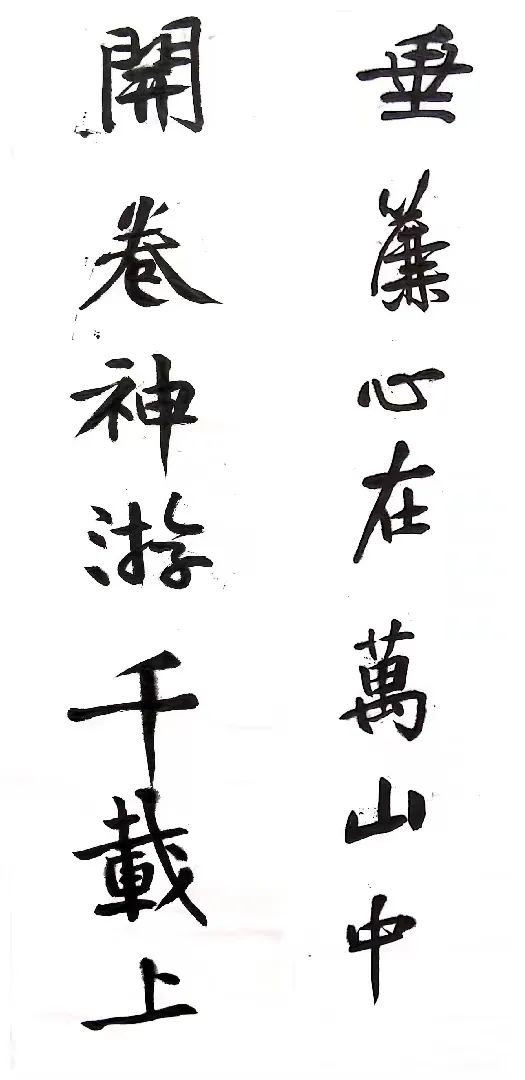 垂簾心在萬山中
開卷神游千載上